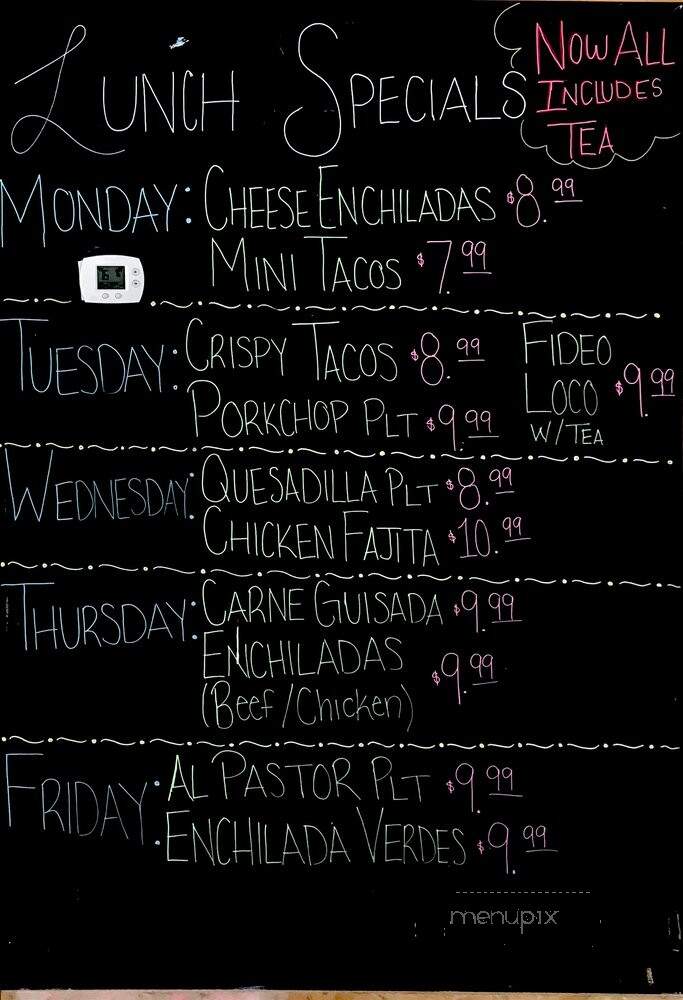 Lunch Specials
Now All
Includes
Tea
Monday: Cheese Enchiladas $8.99
Mini Tacos $7.99
Tuesday: Crispy Tacos $8.99
Porkchop Plt $9.99
Fideo
Loco $9.99
w/Tea
Wednesday: Quesadilla Plt $8.99
Chicken Fajita $10.99
Thursday: Carne Guisada $9.99
Enchiladas
(Beef/Chicken) $9.99
Friday: Al Pastor Plt $9.99
Enchilada Verdes $9.99
menupix